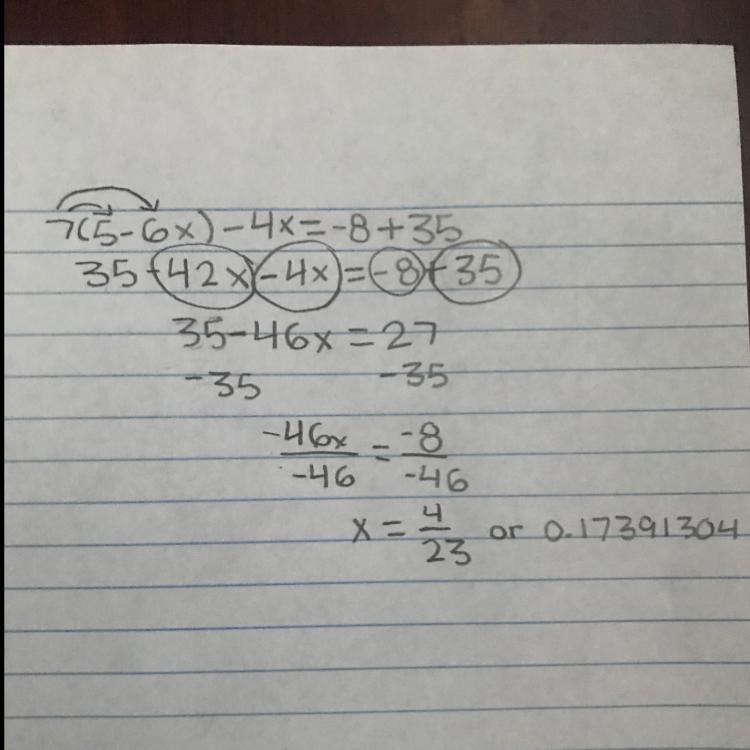 7(5-6x)-4x=-8+35
35-42x-4x=-8+35
35-46x=27
-35 -35
-46x/-46=-8/-46
x=4/23 or 0.17391304